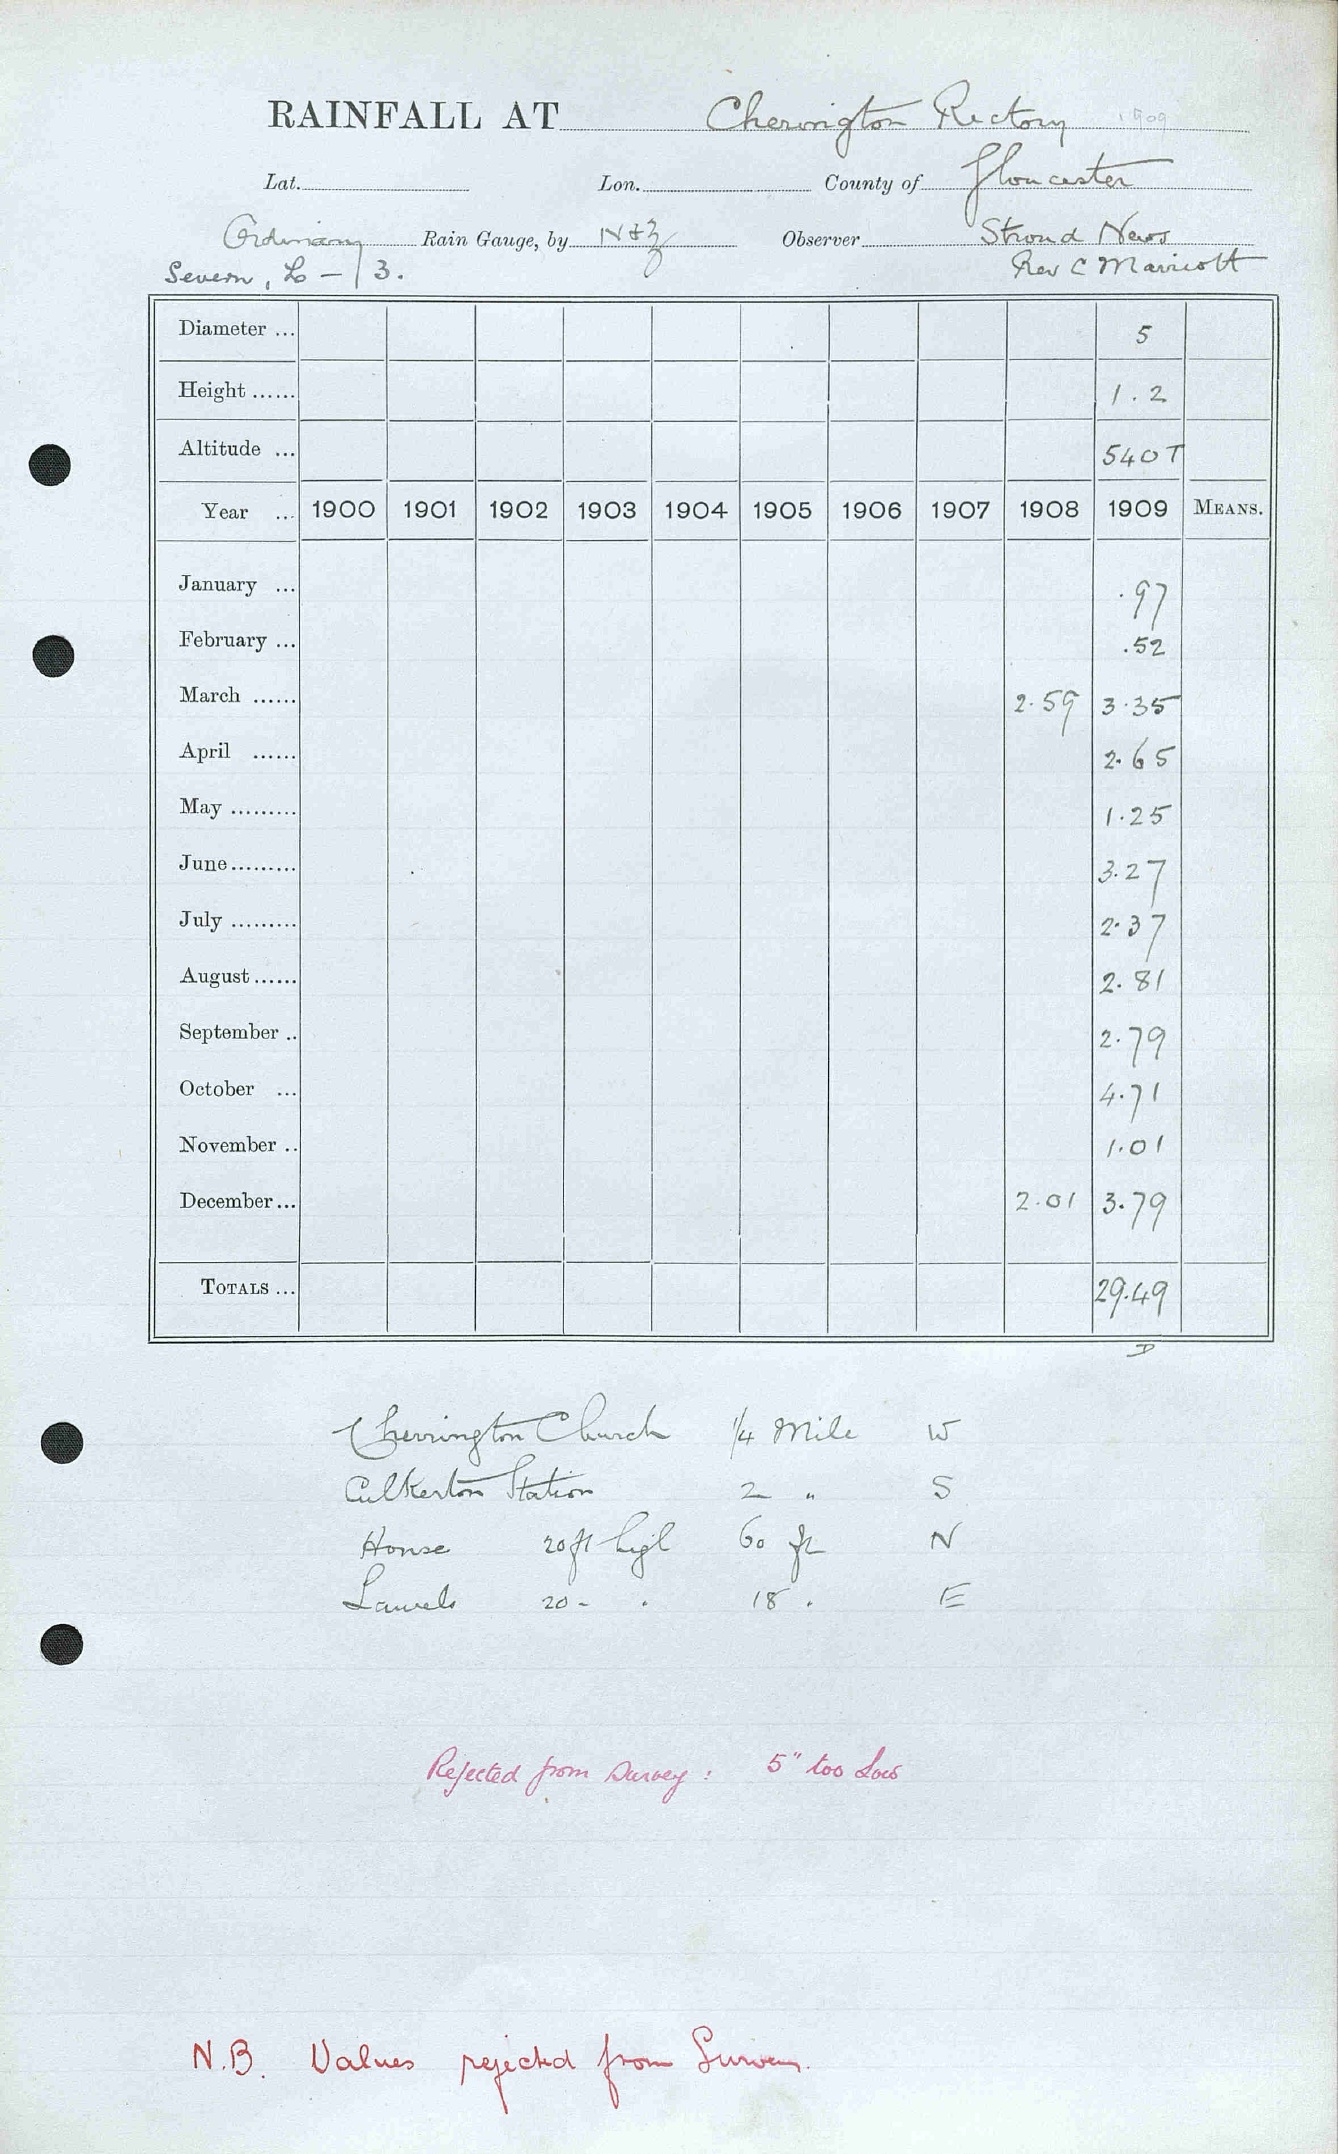 RAINFALL AT Cherington Rectory 1909
Lat. Lon. County of Gloucester
Ordinary Rain Gauge, by N & Z Observer Stroud News
Severn, L – 3. Rev C Marricott
Diameter ... 5
Height ...... 1.2
Altitude ... 540 T
Year ... 1900 1901 1902 1903 1904 1905 1906 1907 1908 1909 MEANS.
January ... .97
February ... .52
March ...... 2.59 3.35
April ...... 2.65
May ......... 1.25
June ......... 3.27
July ......... 2.37
August ...... 2.81
September .. 2.79
October ... 4.71
November .. 1.01
December ... 2.01 3.79
TOTALS ... 29.49
D
Cherrington Church 1/4 Mile W
Culkerton Station 2 " S
House 20 ft high 60 ft N
Laurels 20 - . 18 . E
Rejected from Survey : 5" too Low
N.B. Values rejected from Survey.